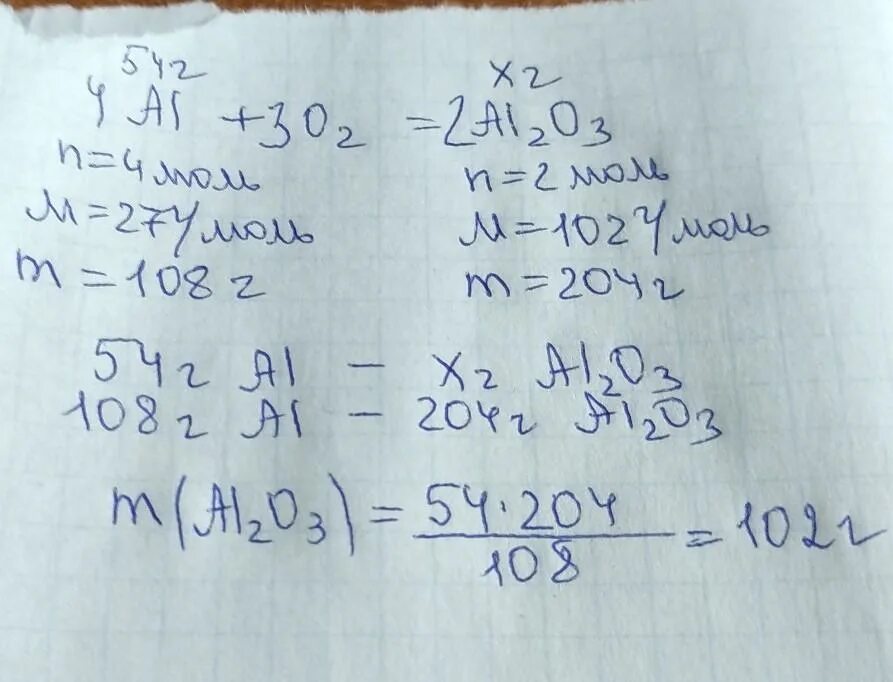 54г xг
4Al + 3O₂ = 2Al₂O₃
n=4моль n=2моль
M=27г/моль M=102г/моль
m=108г m=204г
54г Al – xг Al₂O₃
108г Al – 204г Al₂O₃
m(Al₂O₃) = 54·204/108 = 102г